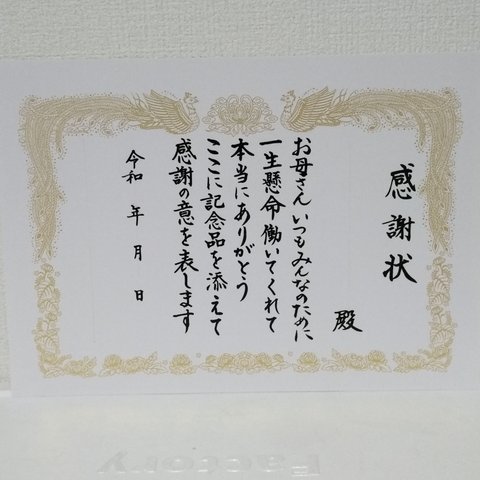 感謝状
殿
お母さんいつもみんなのために
一生懸命働いてくれて
本当にありがとう
ここに記念品を添えて
感謝の意を表します
令和 年 月 日
Factory